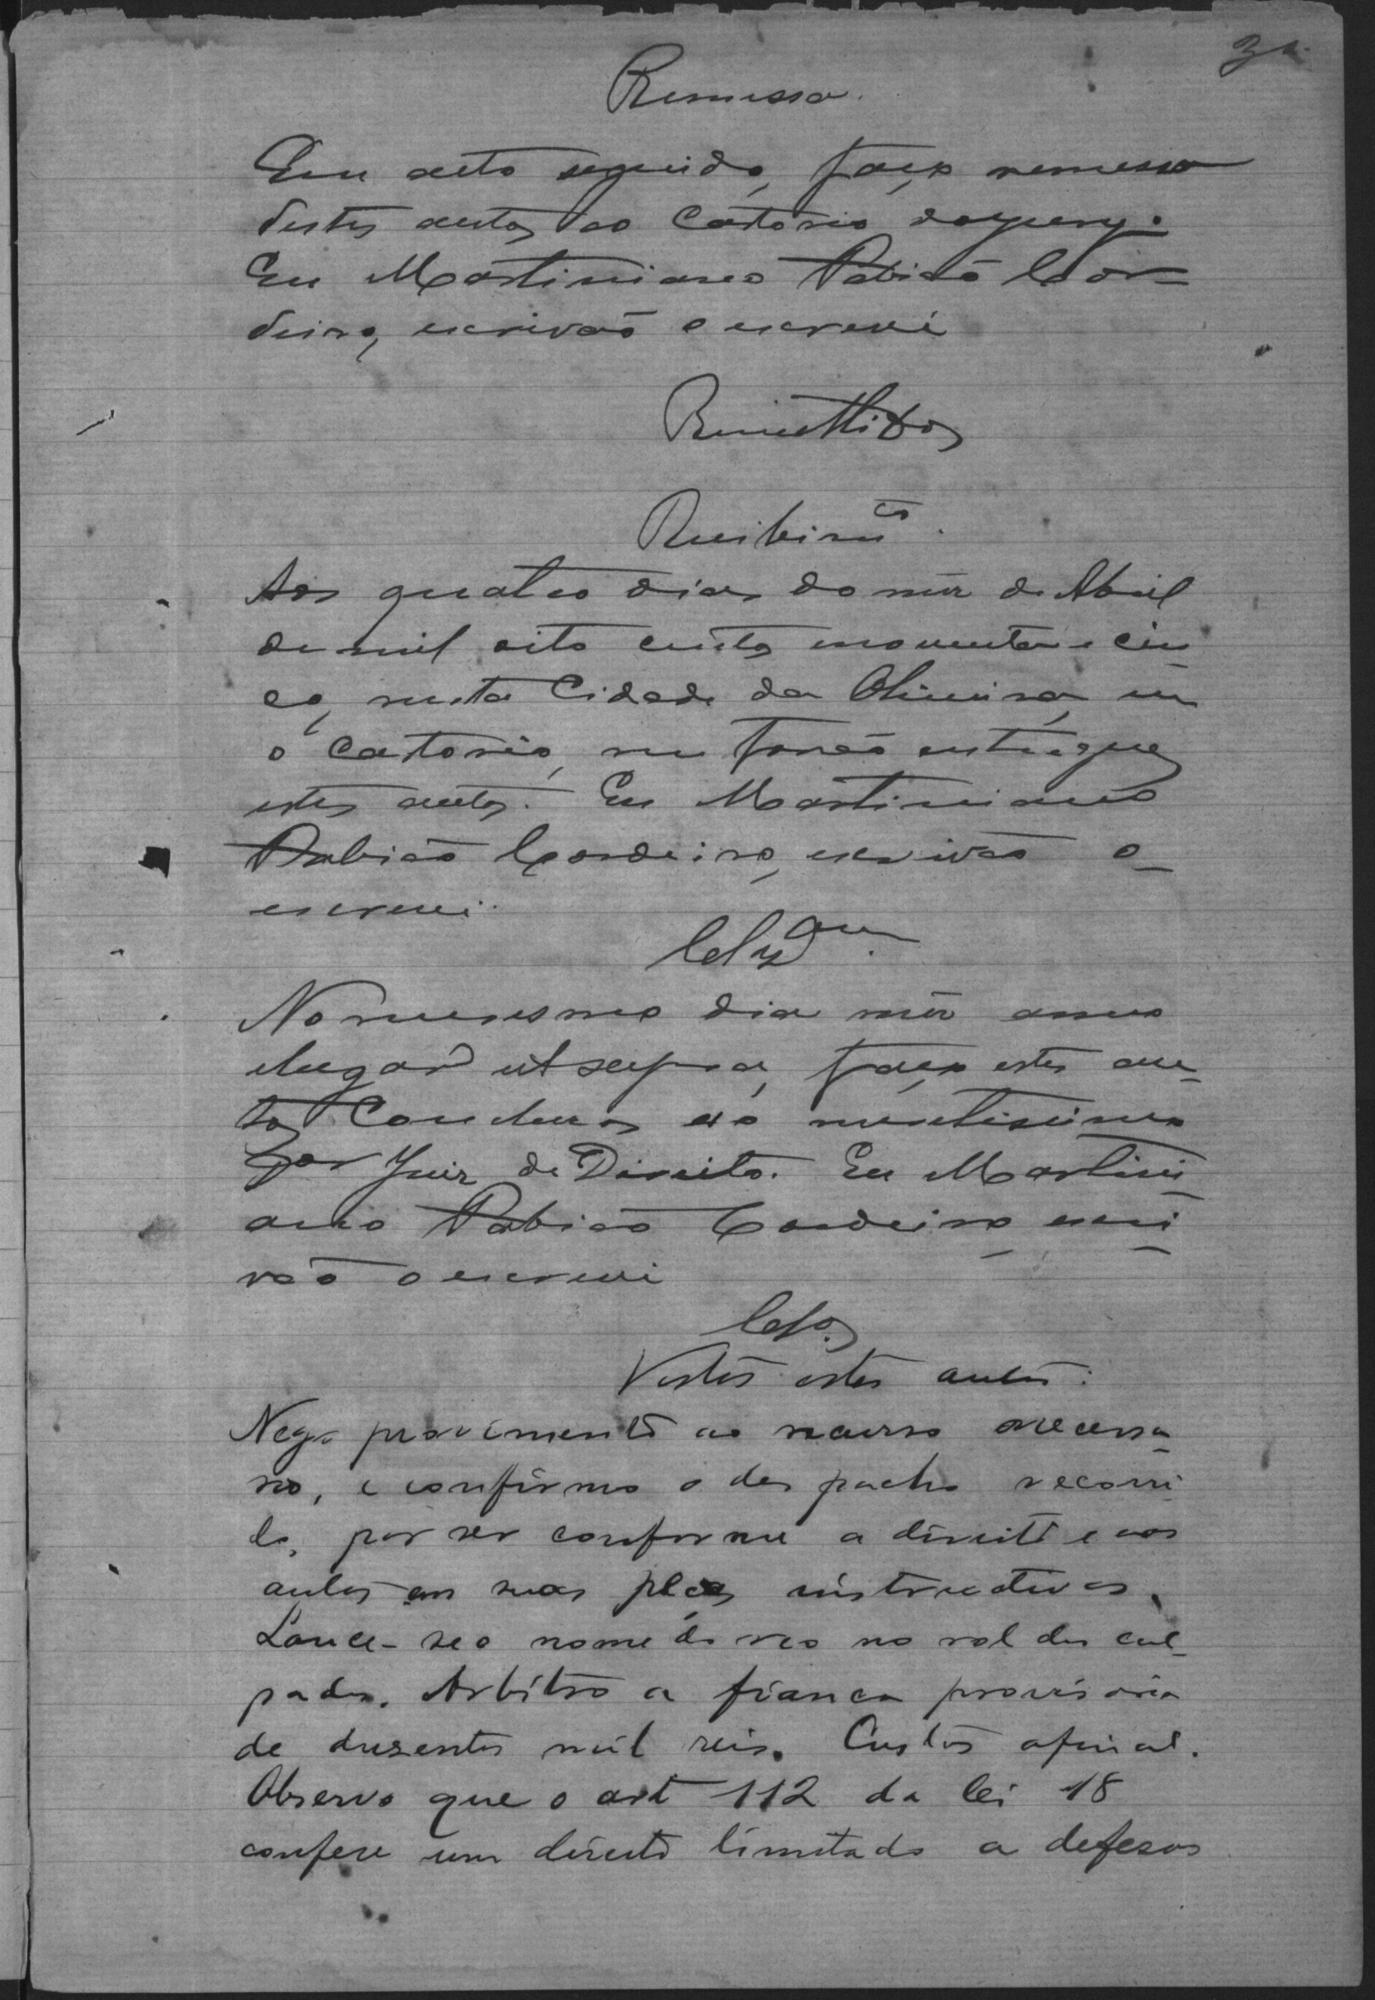 Remessa.
Em acto seguido, faço remessa
destes autos ao Cartorio do jury.
Eu Martiniano Rabião Cor-
deiro, escrivão o escrevi
Remettidos
Recebim.to
Aos quatro dias do mez de Abril
de mil oito centos e noventa e cin-
co, nesta Cidade da Oliveira, em
o Cartorio, me forão entregues
estes autos. Eu Martiniano
Rabião Cordeiro, escrivão o
escrevi.
Clzam.
No mesmo dia mez anno
e lugar ut supra, faço estes au-
tos Conclusos ao meritissimo
Juiz de Direito. Eu Martini-
ano Rabião Cordeiro escri-
vão o escrevi
Clsos
Vistos estes autos:
Nego provimento ao recurso necessa-
rio, e confirmo o despacho recorri-
do, por ser conforme a direito e aos
autos em suas peças instructivas.
Lance-se o nome do reo no rol dos cul-
pados. Arbitro a fiança provisoria
de duzentos mil reis. Custas afinal.
Observo que o art 112 da lei 18
confere um direito limitado a defesa